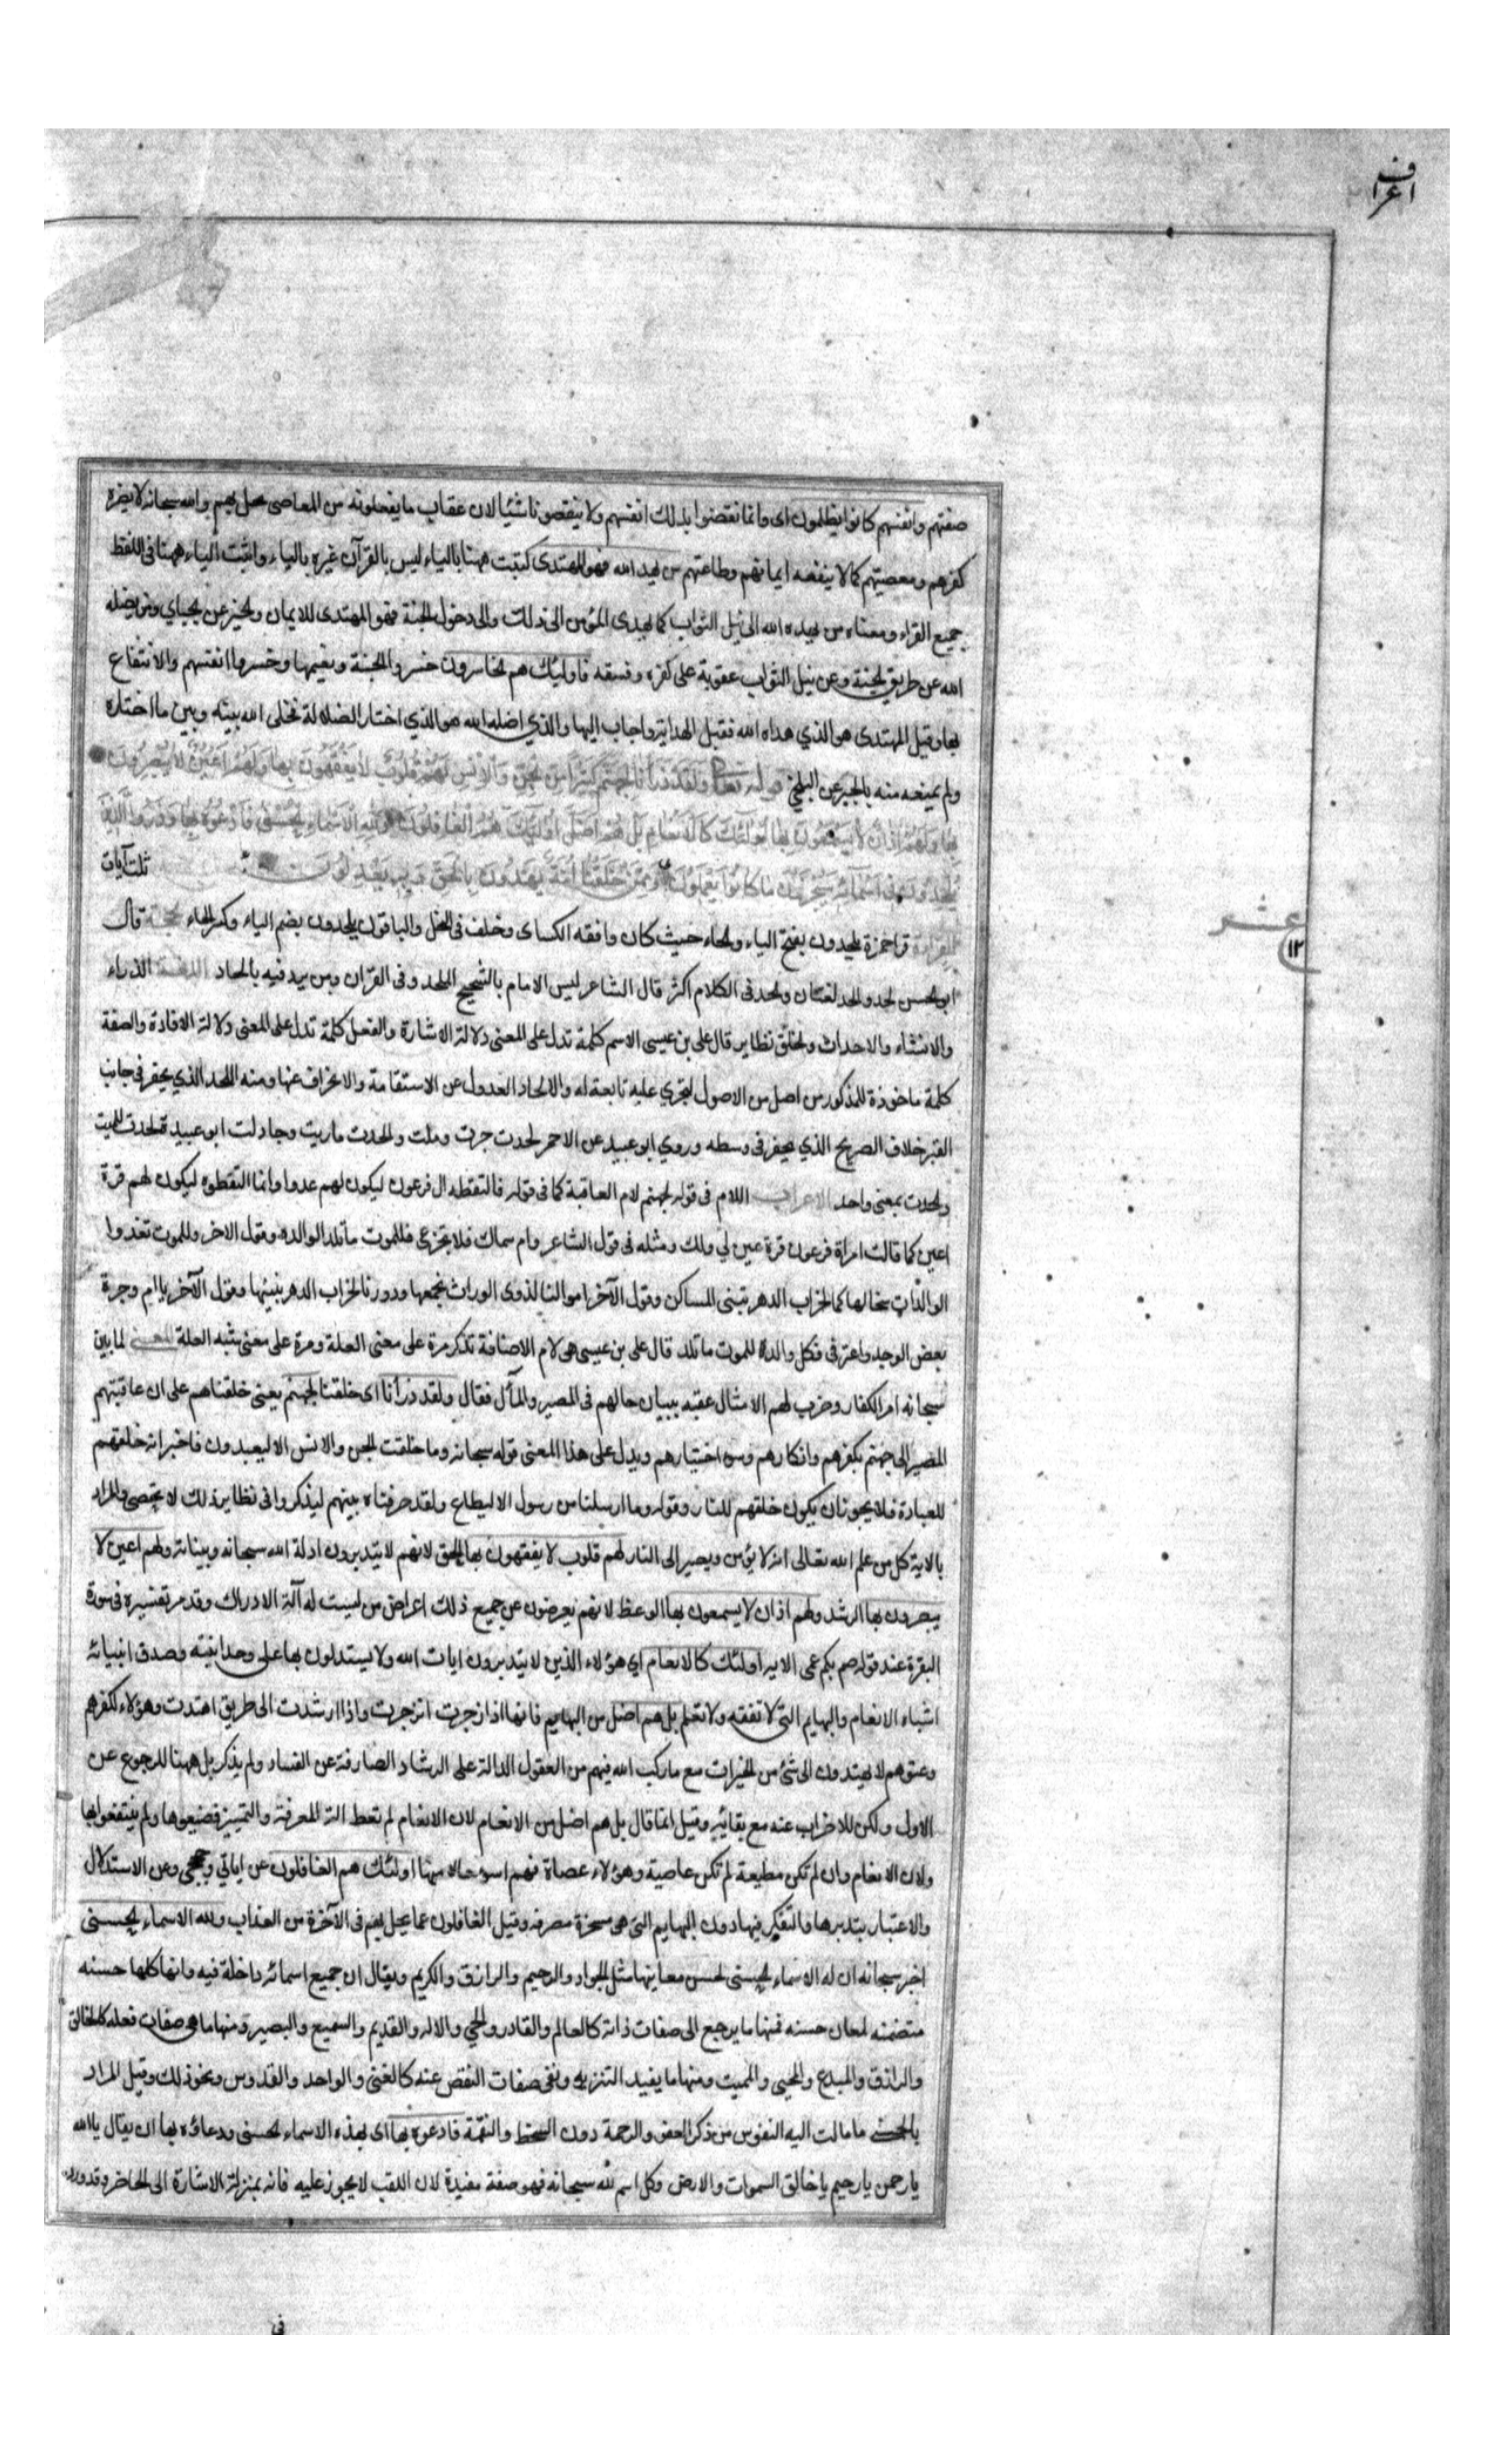 اعراف
صفتهم وانفسهم كانوا يظلمون اى وانما نقصوا بذلك انفسهم ولا ينقصونا شيئا لان عقاب ما يفعلونه من المعاصى يحل بهم والله سبحانه لا يضره
كفرهم ومعصيتهم كما لا ينفعه ايمانهم وطاعتهم من يهد الله فهو المهتدى كتبت ههنا بالياء ليس بالقرآن غيره بالياء واثبت الياء ههنا فى اللفظ
جميع القراء ومعناه من يهده الله الى نيل الثواب كما يهدى المؤمن الى ذلك والى دخول الجنة فهو المهتدى للايمان والخير عن الجبائي ومن يضلله
الله عن طريق الجنة وعن نيل الثواب عقوبة على كفره وفسقه فاولئك هم الخاسرون خسروا الجنة ونعيمها وخسروا انفسهم والانتفاع
بها وقيل المهتدى هو الذي هداه الله فقبل الهداية واجاب اليها والذي اضله الله هو الذي اختار الضلالة فخلى الله بينه وبين ما اختاره
ولم يمنعه منه بالجبر عن البلخي قوله تعالى ولقد ذرأنا لجهنم كثيرا من الجن والانس لهم قلوب لا يفقهون بها ولهم اعين لا يبصرون
بها ولهم اذان لا يسمعون بها اولئك كالانعام بل هم اضل اولئك هم الغافلون ولله الاسماء الحسنى فادعوه بها وذروا الذين
يلحدون فى اسمائه سيجزون ما كانوا يعملون وممن خلقنا امة يهدون بالحق وبه يعدلون ثلث آيات
القراءة قرا حمزة يلحدون بفتح الياء والحاء حيث كان وافقه الكساى وخلف فى النحل والباقون يلحدون بضم الياء وكسر الحاء الحجة قال
عشر
١٢
ابو الحسن لحد والحد لغتان والحد فى الكلام اكثر قال الشاعر ليس الامام بالشحيح الملحد وفى القرآن ومن يرد فيه بالحاد اللغة الذراء
والانشاء والاحداث والخلق نظاير قال على بن عيسى الاسم كلمة تدل على المعنى دلالة الاشارة والفعل كلمة تدل على المعنى دلالة الافادة والصفة
كلمة ماخوذة للمذكور من اصل من الاصول لتجري عليه تابعة له والالحاد العدول عن الاستقامة والانحراف عنها ومنه اللحد الذي يحفر فى جانب
القبر خلاف الضريح الذي يحفر فى وسطه وروي ابو عبيد عن الاحمر لحدت جرت وملت والحدت ماريت وجادلت ابو عبيدة لحدت للميت
والحدت بمعنى واحد الاعراب اللام فى قوله لجهنم لام العاقبة كما فى قوله فالتقطه ال فرعون ليكون لهم عدوا وانما التقطوه ليكون لهم قرة
اعين كما قالت امراة فرعون قرة عين لي ولك ومثله فى قول الشاعر وام سماك فلا تجزعى فللموت ما تلد الوالده وقول الاخر وللموت تغذوا
الوالدات سخالها كما لخراب الدهر تبنى المساكن وقول الآخر اموالنا لذوى الوراث نجمعها ودورنا لخراب الدهر نبنيها وقول الآخر يا ام وجرة
بعض الوجد واعترفى فكل والدة للموت ما تلد قال على بن عيسى هى لام الاضافة تذكر مرة على معنى العلة ومرة على معنى شبه العلة المعنى لما بين
سبحانه امر الكفار وضرب لهم الامثال عقبه ببيان حالهم فى المصير والمآل فقال ولقد ذرأنا اى خلقنا لجهنم يعنى خلقناهم على ان عاقبتهم
المصير الى جهنم بكفرهم وانكارهم وسوء اختيارهم ويدل على هذا المعنى قوله سبحانه وما خلقت الجن والانس الا ليعبدون فاخبر انه خلقهم
للعبادة فلا يجوز ان يكون خلقهم للنار وقوله وما ارسلنا من رسول الا ليطاع ولقد صرفناه بينهم ليذكروا فى نظاير لذلك لا تحصى والمراد
بالاية كل من علم الله تعالى انه لا يؤمن ويصير الى النار لهم قلوب لا يفقهون بها الحق لانهم لا يتدبرون ادلة الله سبحانه وبيناته ولهم اعين لا
يبصرون بها الرشد ولهم اذان لا يسمعون بها الوعظ لانهم يعرضون عن جميع ذلك اعراض من ليست له آلة الادراك وقد مر تفسيره فى سورة
البقرة عند قوله صم بكم عمى الاية اولئك كالانعام اي هؤلاء الذين لا يتدبرون ايات الله ولا يستدلون بها على وحدانيته وصدق انبيائه
اشباه الانعام والبهايم التى لا تفقه ولا تعلم بل هم اضل من البهايم فانها اذا زجرت انزجرت واذا ارشدت الى طريق اهتدت وهؤلاء لكفرهم
وعتوهم لا يهتدون الى شئ من الخيرات مع ما ركب الله فيهم من العقول الدالة على الرشاد الصارفة عن الفساد ولم يذكر بل ههنا للرجوع عن
الاول ولكن للاضراب عنه مع بقائه وقيل انما قال بل هم اضل من الانعام لان الانعام لم تعط الة المعرفة والتمييز فضيعوها ولم ينتفعوا بها
ولان الانعام وان لم تكن مطيعة لم تكن عاصية وهؤلاء عصاة فهم اسوء حالا منها اولئك هم الغافلون عن اياتي وحججى وعن الاستدلال
والاعتبار بتدبرها والتفكر فيها دون البهايم التى هى مسخرة مصرفة وقيل الغافلون عما يحل بهم فى الآخرة من العذاب ولله الاسماء الحسنى
اخبر سبحانه ان له الاسماء الحسنى لحسن معانيها مثل الجواد والرحيم والرازق والكريم ويقال ان جميع اسمائه داخلة فيه وانها كلها حسنه
متضمنه لمعان حسنه فمنها ما يرجع الى صفات ذاته كالعالم والقادر والحي والاله والقديم والسميع والبصير ومنها ما هى صفات فعله كالخالق
والرازق والمبدع والمحيى والمميت ومنها ما يفيد التنزيه ونفى صفات النقص عنه كالغنى والواحد والقدوس ونحو ذلك وقيل المراد
بالحسنى ما مالت اليه النفوس من ذكر العفو والرحمة دون السخط والنقمة فادعوه بها اى بهذه الاسماء الحسنى ودعاؤه بها ان يقال يا الله
يا رحمن يا رحيم يا خالق السموات والارض وكل اسم لله سبحانه فهو صفة مفيدة لان اللقب لا يجوز عليه فانه بمنزلة الاشارة الى الحاضر وقد ورد
فى